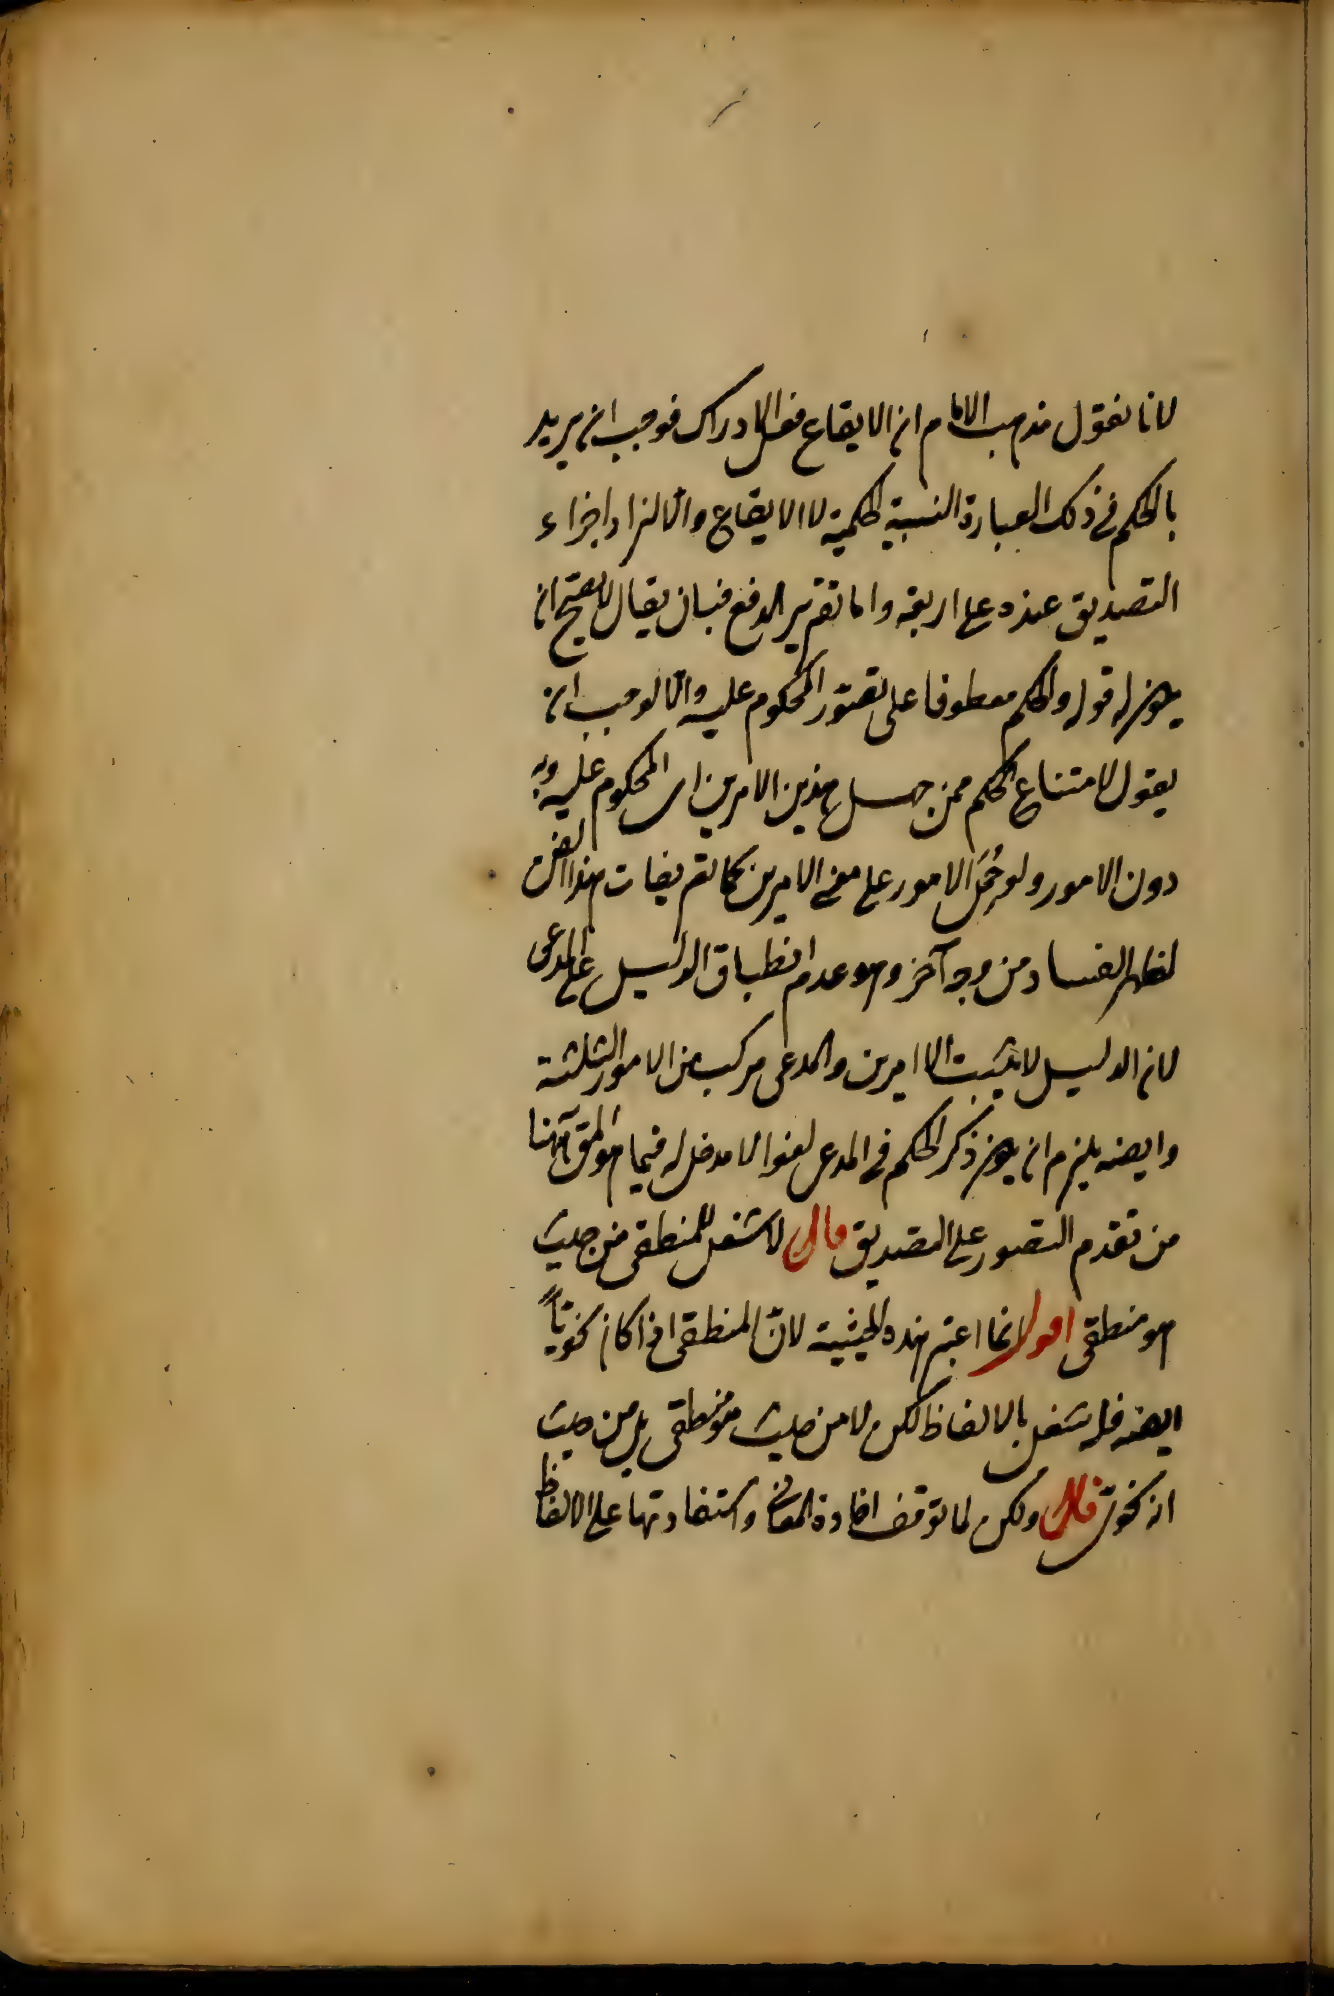 لانا نقول مذهب الامام ان الايقاع فعل لا ادراك فوجب ان يريد
بالحكم في ذلك العبارة النسبية الحكمية لا الايقاع والا لزاد اجزاء
التصديق عنده على اربعة واما تقرير الدفع فبان يقال لا يصح ان
يكون قوله والحكم معطوفا على تصور المحكوم عليه والا لوجب ان
يقول لامتناع الحكم ممن جهل هذين الامرين اى المحكوم عليه وبه
دون الامور ولو حُمَل الامور على معنى الامرين كما تعريفات هذا الفن
لظهر الفساد من وجه آخر وهو عدم انطباق الدليل على المدعى
لان الدليل لا يثبت الا امرين والمدعى مركب من الامور الثلثة
وايضه يلزم ان يكون ذكر الحكم في المدعى لغوا لا مدخل له فيما هو المق ههنا
من تقدم التصور على التصديق قال لا شغل للمنطقى من حيث
هو منطقى اقول انما اعتبر هذه الحيثية لانّ المنطقى اذا كان نحويّاً
ايضه فله شغل بالالفاظ لكن لا من حيث هو منطقى بل من حيث
انه نحوى قال ولكن لما توقف افادة المعانى واستفادتها على الالفاظ